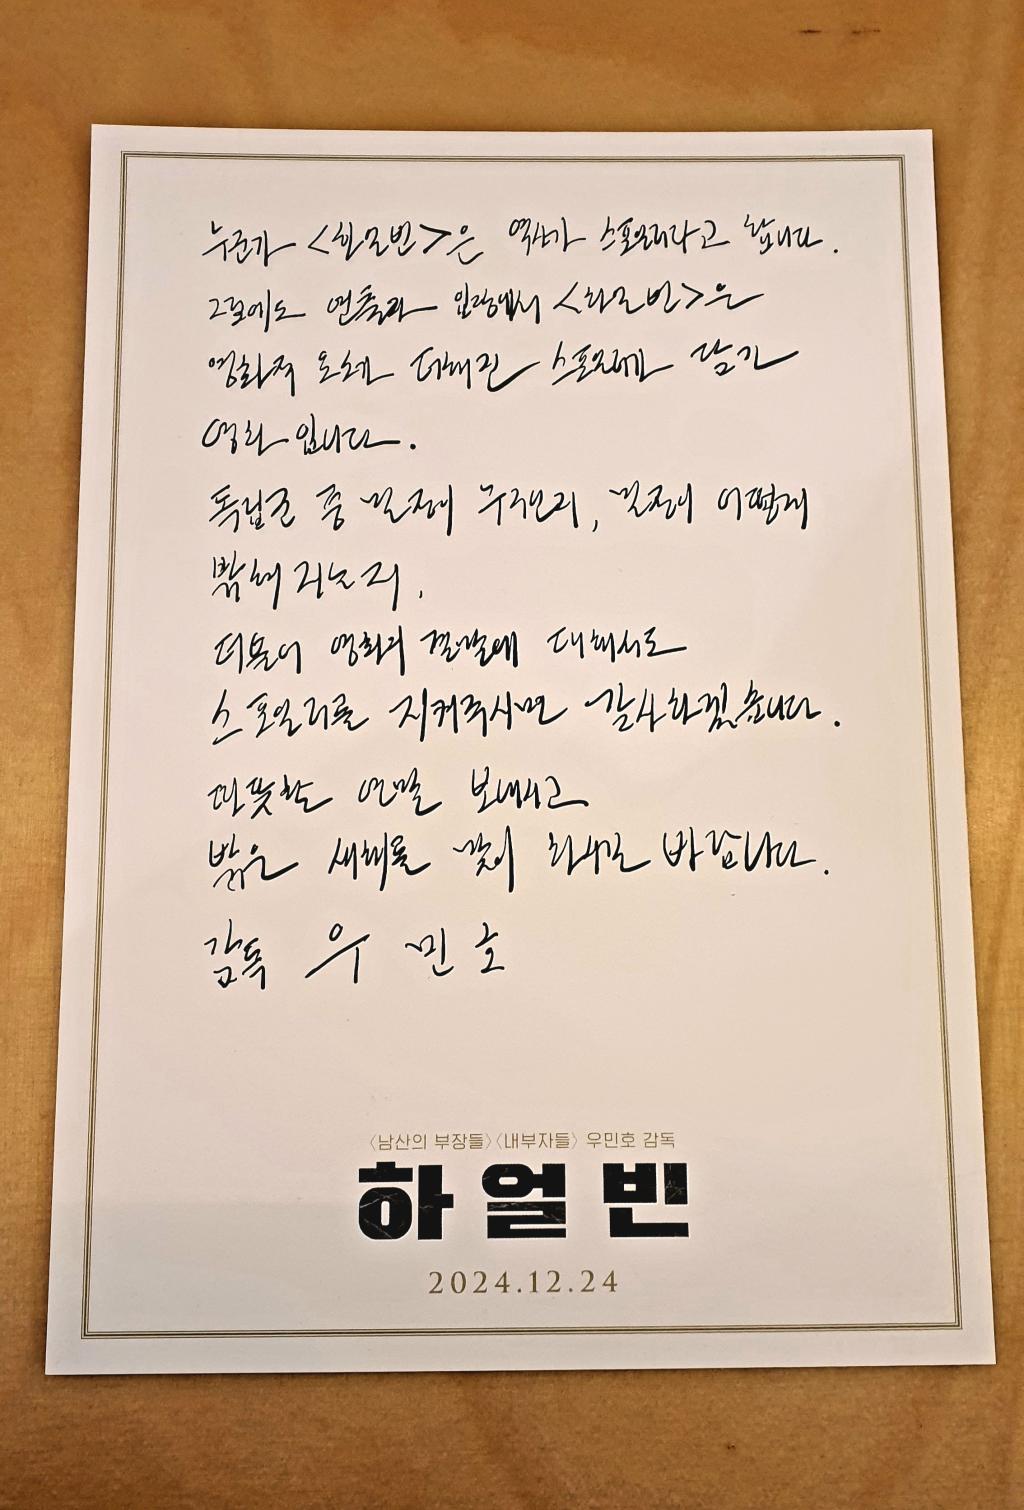 누군가 <하얼빈>은 역사가 스포일러라고 합니다.
그럼에도 연출자 입장에서 <하얼빈>은
영화적 요소에 더해진 스포일러가 담긴
영화 입니다.
독립군 중 밀정이 누구인지, 밀정이 어떻게
밝혀지는지,
더불어 영화의 결말에 대해서도
스포일러를 지켜주시면 감사하겠습니다.
따뜻한 연말 보내시고
밝은 새해를 맞이 하시길 바랍니다.
감독 우 민 호
<남산의 부장들><내부자들> 우민호 감독
하얼빈
2024.12.24